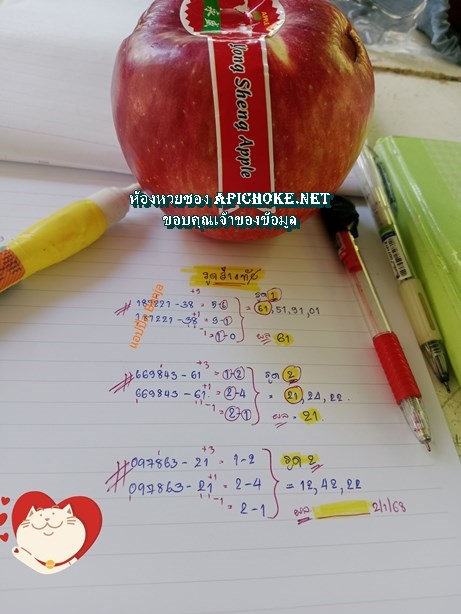 Yong Sheng Apple
ห้องหวยซอง APICHOKE.NET
ขอบคุณเจ้าของข้อมูล
รูด 1
187221-38 = 5-6
+3
187221-38 = 3-1
+1
-1 = 1-0
= 61, 51, 91, 01
ผล 61
669843-61 = 1-2
+3
669843-61 = 2-4
+1
-1 = 2-1
รูด 2
= 21, 24, 22
ผล = 21
097863-21 = 1-2
+3
097863-21 = 2-4
+1
-1 = 2-1
รูด 2
= 12, 42, 22
ผล
2/1/68